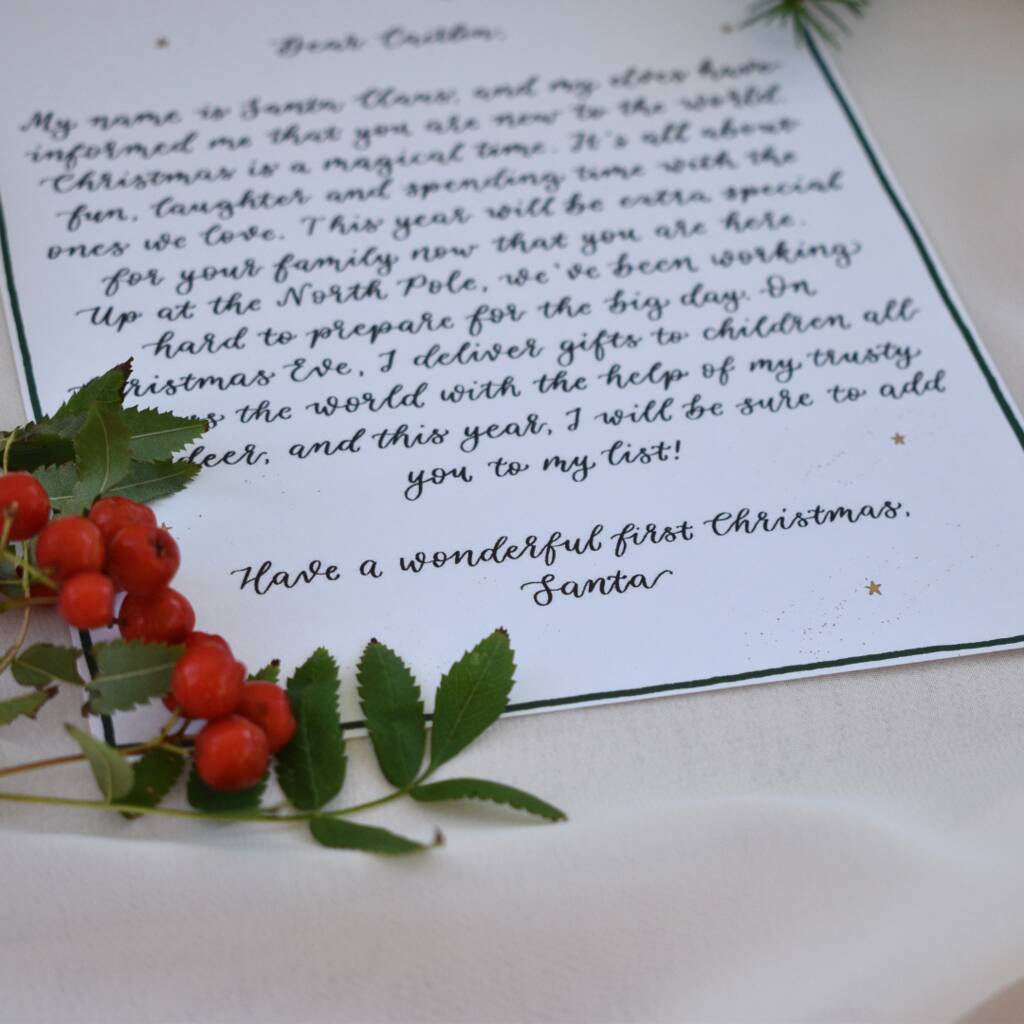 Dear Caitlin,
My name is Santa Claus, and my elves have
informed me that you are new to the world.
Christmas is a magical time. It's all about
fun, laughter and spending time with the
ones we love. This year will be extra special
for your family now that you are here.
Up at the North Pole, we've been working
hard to prepare for the big day. On
ristmas Eve, I deliver gifts to children all
s the world with the help of my trusty
deer, and this year, I will be sure to add
you to my list!
Have a wonderful first Christmas,
Santa